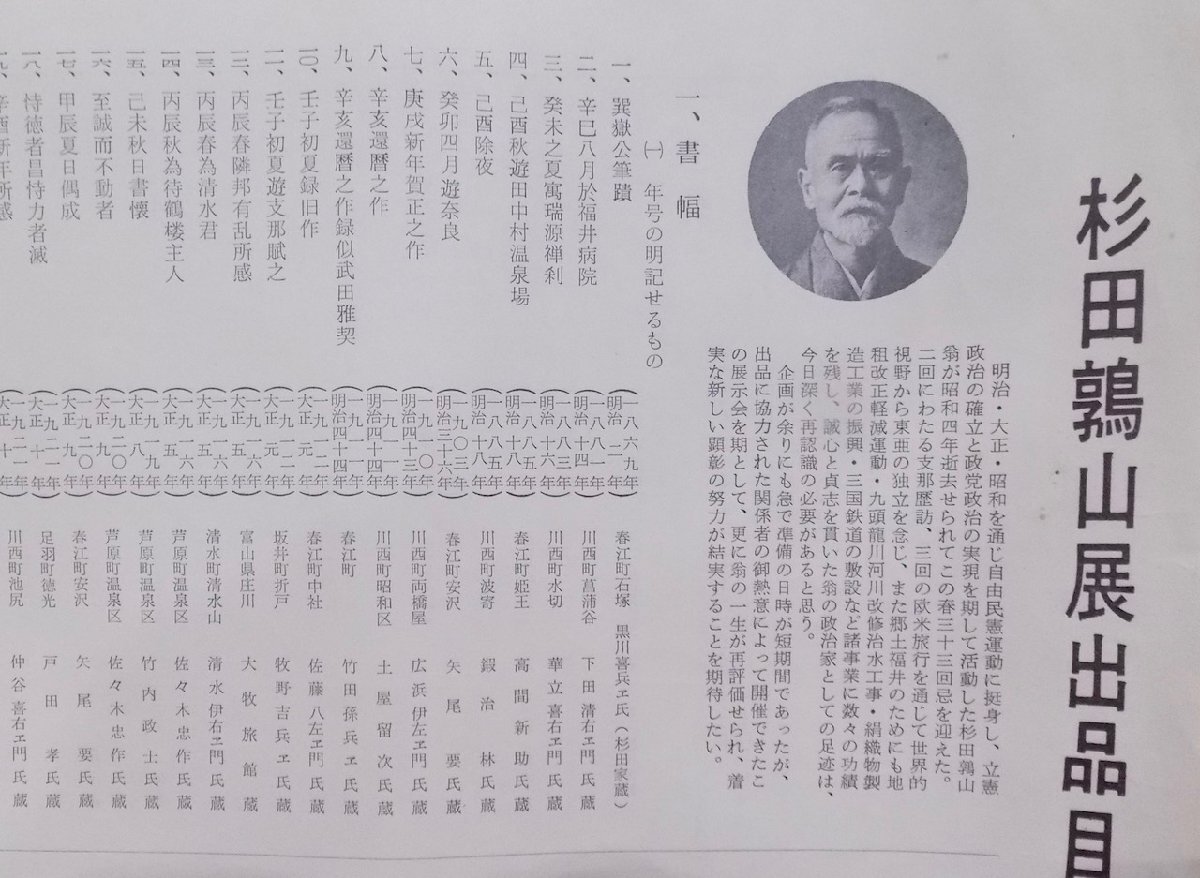 杉田鶉山展出品目
明治・大正・昭和を通じ自由民憲運動に挺身し、立憲
政治の確立と政党政治の実現を期して活動した杉田鶉山
翁が昭和四年逝去せられてこの春三十三回忌を迎えた。
二回にわたる支那歴訪、三回の欧米旅行を通じて世界的
視野から東亜の独立を念じ、また郷土福井のためにも地
租改正軽減運動・九頭龍川河川改修治水工事・絹織物製
造工業の振興・三国鉄道の敷設など諸事業に数々の功績
を残し、誠心と貞志を貫いた翁の政治家としての足迹は、
今日深く再認識の必要があると思う。
企画が余りにも急で準備の日時が短期間であったが、
出品に協力された関係者の御熱意によって開催できたこ
の展示会を期として、更に翁の一生が再評価せられ、着
実な新しい顕彰の努力が結実することを期待したい。
一、書幅
㈠ 年号の明記せるもの
一、巽嶽公筆蹟 (一八六九年 明治二年) 春江町石塚 黒川喜兵ヱ氏(杉田家蔵)
二、辛巳八月於福井病院 (一八八一年 明治十四年) 川西町菖蒲谷 下田清右ヱ門氏蔵
三、癸未之夏寓瑞源禅刹 (一八八三年 明治十六年) 川西町水切 華立喜右ヱ門氏蔵
四、己酉秋遊田中村温泉場 (一八八五年 明治十八年) 春江町姫王 高間新助氏蔵
五、己酉除夜 (一八八五年 明治十八年) 川西町波寄 鍜治林氏蔵
六、癸卯四月遊奈良 (一九〇三年 明治三十六年) 春江町安沢 矢尾要氏蔵
七、庚戌新年賀正之作 (一九一〇年 明治四十三年) 川西町両橋屋 広浜伊左ヱ門氏蔵
八、辛亥還暦之作 (一九一一年 明治四十四年) 川西町昭和区 土屋留次氏蔵
九、辛亥還暦之作録似武田雅契 (一九一一年 明治四十四年) 春江町 竹田孫兵ヱ氏蔵
一〇、壬子初夏録旧作 (一九一二年 大正元年) 春江町中社 佐藤八左ヱ門氏蔵
一一、壬子初夏遊支那賦之 (一九一二年 大正元年) 坂井町折戸 牧野吉兵ヱ氏蔵
一二、丙辰春隣邦有乱所感 (一九一六年 大正五年) 富山県庄川 大牧旅館蔵
一三、丙辰春為清水君 (一九一六年 大正五年) 清水町清水山 清水伊右ヱ門氏蔵
一四、丙辰秋為待鶴楼主人 (一九一六年 大正五年) 芦原町温泉区 佐々木忠作氏蔵
一五、己未秋日書懐 (一九一九年 大正八年) 芦原町温泉区 竹内政士氏蔵
一六、至誠而不動者 (一九二〇年 大正九年) 芦原町温泉区 佐々木忠作氏蔵
一七、甲辰夏日偶成 (一九二〇年 大正九年) 春江町安沢 矢尾要氏蔵
一八、恃徳者昌恃力者滅 (一九二一年 大正十年) 足羽町徳光 戸田孝氏蔵
一九、辛酉新年所感 (一九二一年 大正十年) 川西町池尻 仲谷喜右ヱ門氏蔵